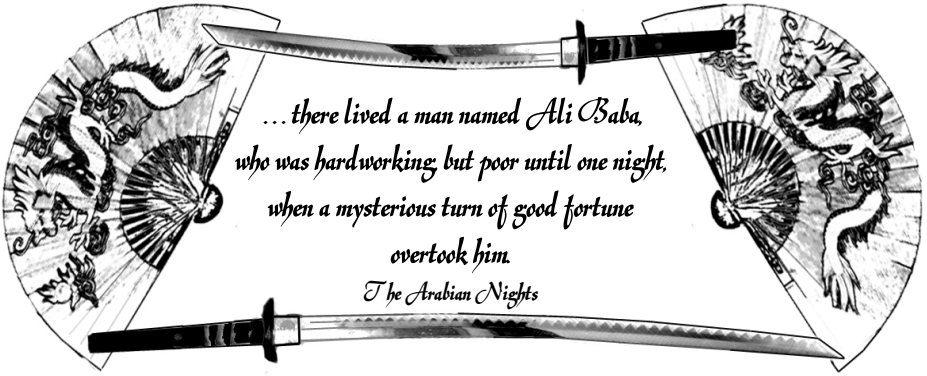 ...there lived a man named Ali Baba,
who was hardworking, but poor until one night,
when a mysterious turn of good fortune
overtook him.
The Arabian Nights